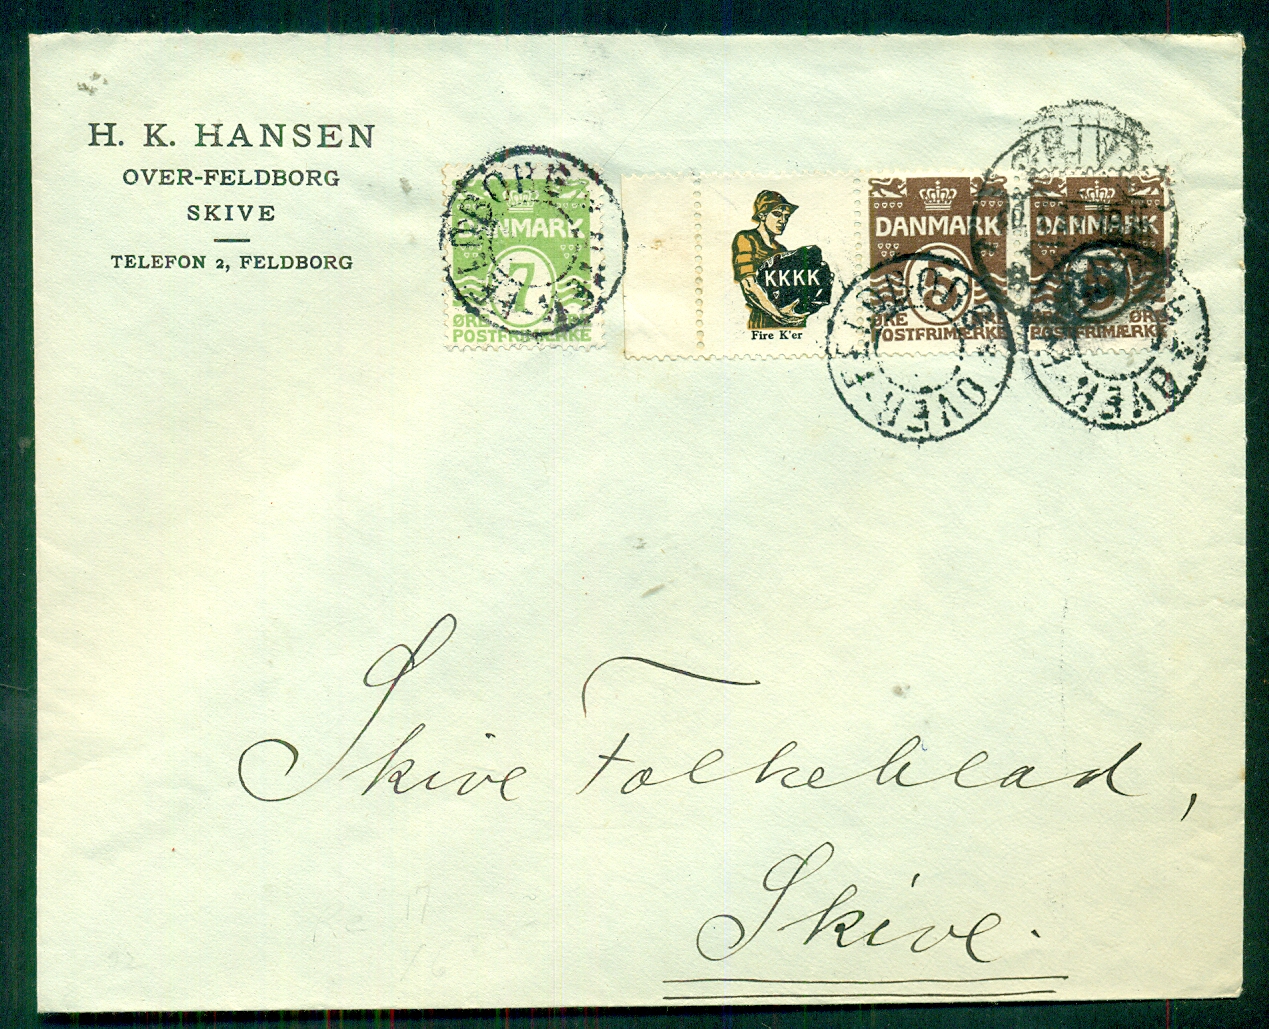 H. K. HANSEN
OVER-FELDBORG
SKIVE
TELEFON 2, FELDBORG
DANMARK
7
ØRE
POSTFRIMÆRKE
KKKK
Fire K'er
DANMARK
5
ØRE
POSTFRIMÆRKE
DANMARK
5
ØRE
POSTFRIMÆRKE
OVER-FELDBORG
OVER-FELDBORG
OVER-FELDBORG
Skive Folkeblad,
Skive.